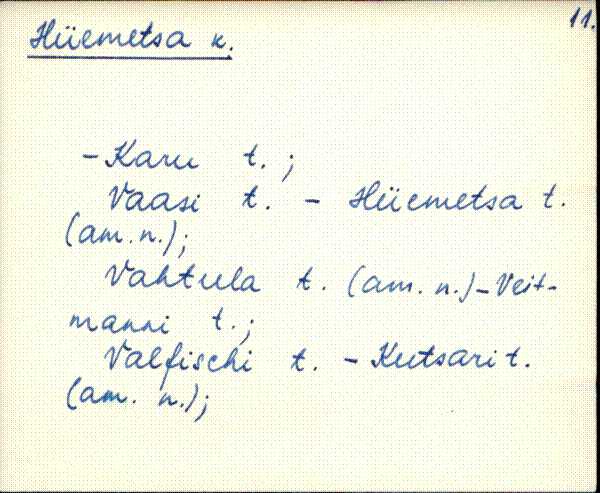 11.
Hüemetsa k.
- Karu t.;
Vaasi t. - Hüemetsa t.
(am. n.);
Vahtula t. (am. n.) - Veit-
manni t.;
Valfischi t. - Kutsari t.
(am. n.);